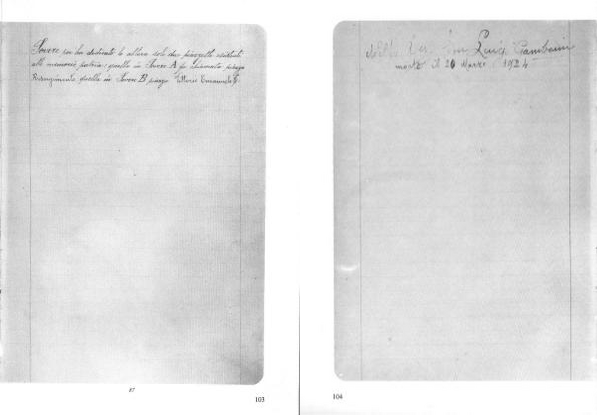 Sovere poi ha dedicato le allora sole due piazzette esistenti
alle memorie patrie: quella in Sovere A fu chiamata piazza
Risorgimento quella in Sovere B piazza Vittorio Emanuele II.
87
103
Rev. Don Luigi Gambarini
morto il 20 Marzo 1924
104